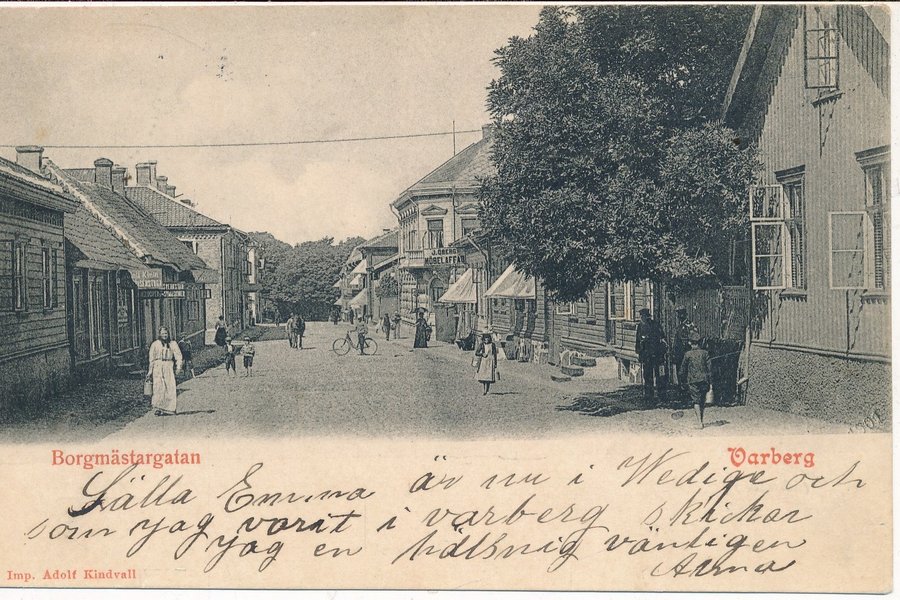 J. ÖBERG
MÖBELAFFÄR
Borgmästargatan
Varberg
Lälla Emma är nu i Wedige och
som yag varit i varberg skickar
yag en hälsnig väntigen
Anna
Imp. Adolf Kindvall